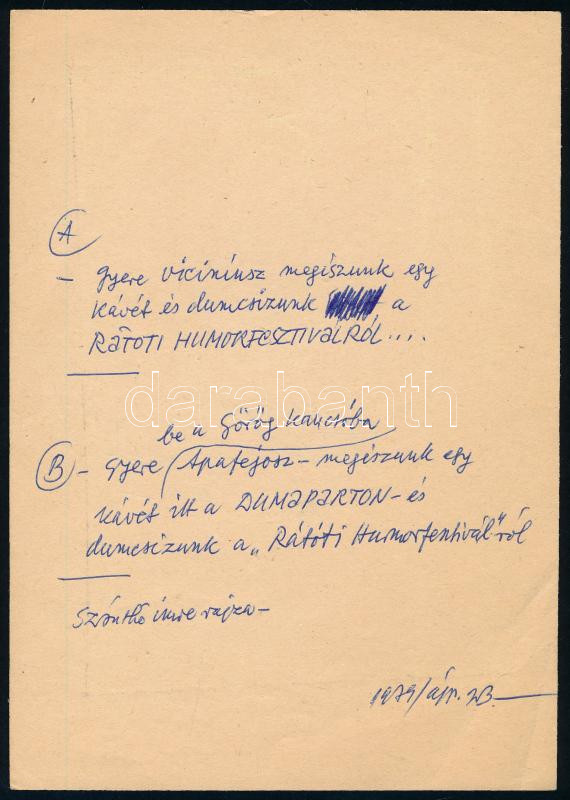 A
– Gyere Viciniusz megiszunk egy
kávét és dumcsizunk a
RÁTÓTI HUMORFESZTIVÁLRÓL ....
darabanth
be a Görög Kancsóba
B – Gyere Apafejosz – megiszunk egy
kávét itt a DUMAPARTON – és
dumcsizunk a „Rátóti Humorfentivál"-ról
Szánthó Imre rajza –
1979/ápr. 23.